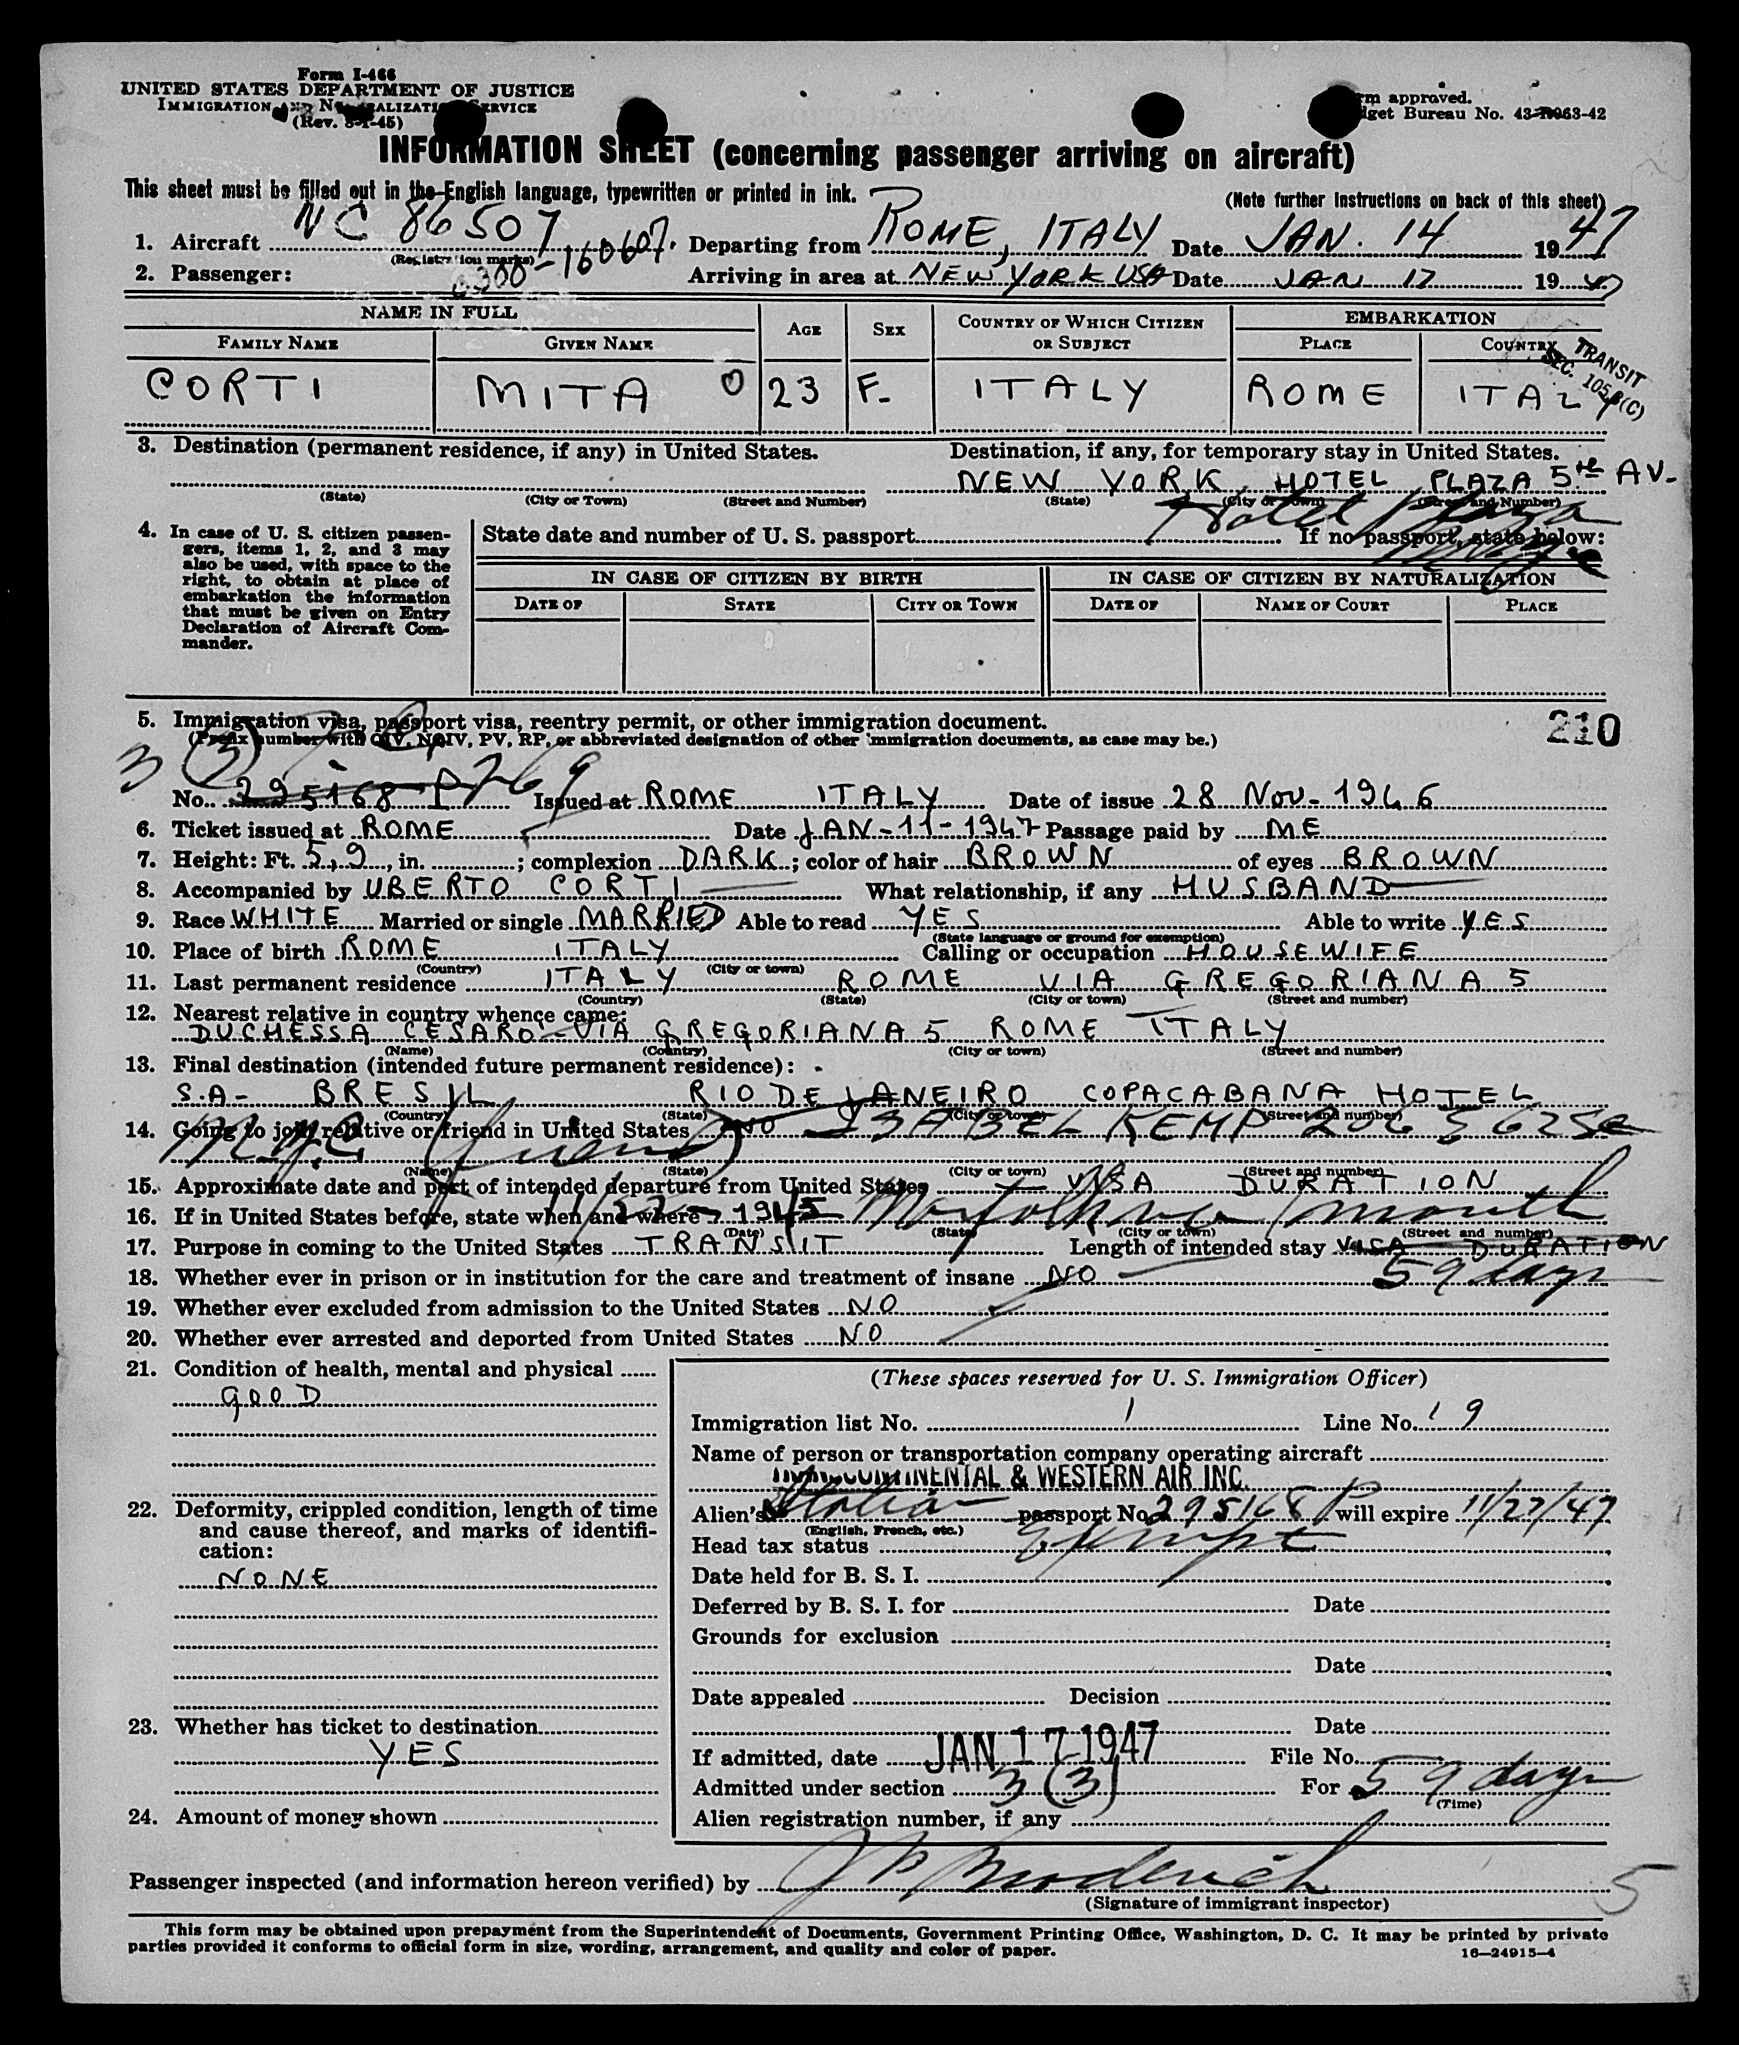 Form I-466
UNITED STATES DEPARTMENT OF JUSTICE
IMMIGRATION AND NATURALIZATION SERVICE
(Rev. 3-1-45)
Form approved.
Budget Bureau No. 43-R063-42
INFORMATION SHEET (concerning passenger arriving on aircraft)
This sheet must be filled out in the English language, typewritten or printed in ink.
(Note further instructions on back of this sheet)
1. Aircraft NC 86507 Departing from ROME, ITALY Date JAN. 14 1947
(Registration marks)
0300-160607.
2. Passenger: Arriving in area at NEW YORK USA Date JAN 17 1947
NAME IN FULL AGE SEX COUNTRY OF WHICH CITIZEN OR SUBJECT EMBARKATION
FAMILY NAME GIVEN NAME PLACE COUNTRY
TRANSIT
SEC. 105.3(C)
CORTI MITA 0 23 F- ITALY ROME ITALY
3. Destination (permanent residence, if any) in United States. Destination, if any, for temporary stay in United States.
NEW YORK HOTEL PLAZA 5th AV-
(State) (City or Town) (Street and Number) (State) (City or Town) (Street and Number)
Hotel Plaza
4. In case of U. S. citizen passengers, items 1, 2, and 3 may also be used, with space to the right, to obtain at place of embarkation the information that must be given on Entry Declaration of Aircraft Commander.
State date and number of U. S. passport If no passport, state below:
IN CASE OF CITIZEN BY BIRTH IN CASE OF CITIZEN BY NATURALIZATION
DATE OF STATE CITY OR TOWN DATE OF NAME OF COURT PLACE
5. Immigration visa, passport visa, reentry permit, or other immigration document.
210
(Prefix number with QIV, NQIV, PV, RP, or abbreviated designation of other immigration documents, as case may be.)
3 (3)
No. 295168 P 769 Issued at ROME ITALY Date of issue 28 Nov-1946
6. Ticket issued at ROME Date JAN-11-1947 Passage paid by ME
7. Height: Ft. 5,9, in. ; complexion DARK ; color of hair BROWN of eyes BROWN
8. Accompanied by UBERTO CORTI What relationship, if any HUSBAND
9. Race WHITE Married or single MARRIED Able to read YES Able to write YES
(State language or ground for exemption)
10. Place of birth ROME ITALY Calling or occupation HOUSEWIFE
(Country) (City or town)
11. Last permanent residence ITALY ROME VIA GREGORIANA 5
(Country) (State) (City or town) (Street and number)
12. Nearest relative in country whence came:
DUCHESSA CESARO'-VIA GREGORIANA 5 ROME ITALY
(Name) (Country) (City or town) (Street and number)
13. Final destination (intended future permanent residence):
S.A- BRESIL RIO DE JANEIRO COPACABANA HOTEL
(Country) (State) (City or town) (Street and number)
14. Going to join relative or friend in United States NO ISABEL KEMP 206 E 62 St
N.Y.C (friend)
(Name) (State) (City or town) (Street and number)
15. Approximate date and port of intended departure from United States VISA DURATION
16. If in United States before, state when and where 11/22-1945 Norfolk va 1 month
(Date) (State) (City or town) (Street and number)
17. Purpose in coming to the United States TRANSIT Length of intended stay VISA DURATION
59 days
18. Whether ever in prison or in institution for the care and treatment of insane NO
19. Whether ever excluded from admission to the United States NO
20. Whether ever arrested and deported from United States NO
21. Condition of health, mental and physical
GOOD
22. Deformity, crippled condition, length of time and cause thereof, and marks of identification:
NONE
23. Whether has ticket to destination
YES
24. Amount of money shown
(These spaces reserved for U. S. Immigration Officer)
Immigration list No. 1 Line No. 19
Name of person or transportation company operating aircraft
TRANSCONTINENTAL & WESTERN AIR INC.
Alien's Italian passport No. 295168 P will expire 11/27/47
(English, French, etc.)
Head tax status Exempt
Date held for B. S. I.
Deferred by B. S. I. for Date
Grounds for exclusion
Date
Date appealed Decision
Date
If admitted, date JAN 17 1947 File No.
Admitted under section 3 (3) For 59 days
(Time)
Alien registration number, if any
Passenger inspected (and information hereon verified) by J P Broderick
5
(Signature of immigrant inspector)
This form may be obtained upon prepayment from the Superintendent of Documents, Government Printing Office, Washington, D. C. It may be printed by private
parties provided it conforms to official form in size, wording, arrangement, and quality and color of paper.
16—24915-4